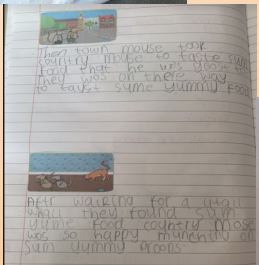 Then town mouse took
country mouse to taste sum
food that he was yoost to
They wos on there way
to tayst sume yummy food
Aftr walking for a litall
whall they found sum
yume food country mose
wos so happy munching on
sum yummy proons.